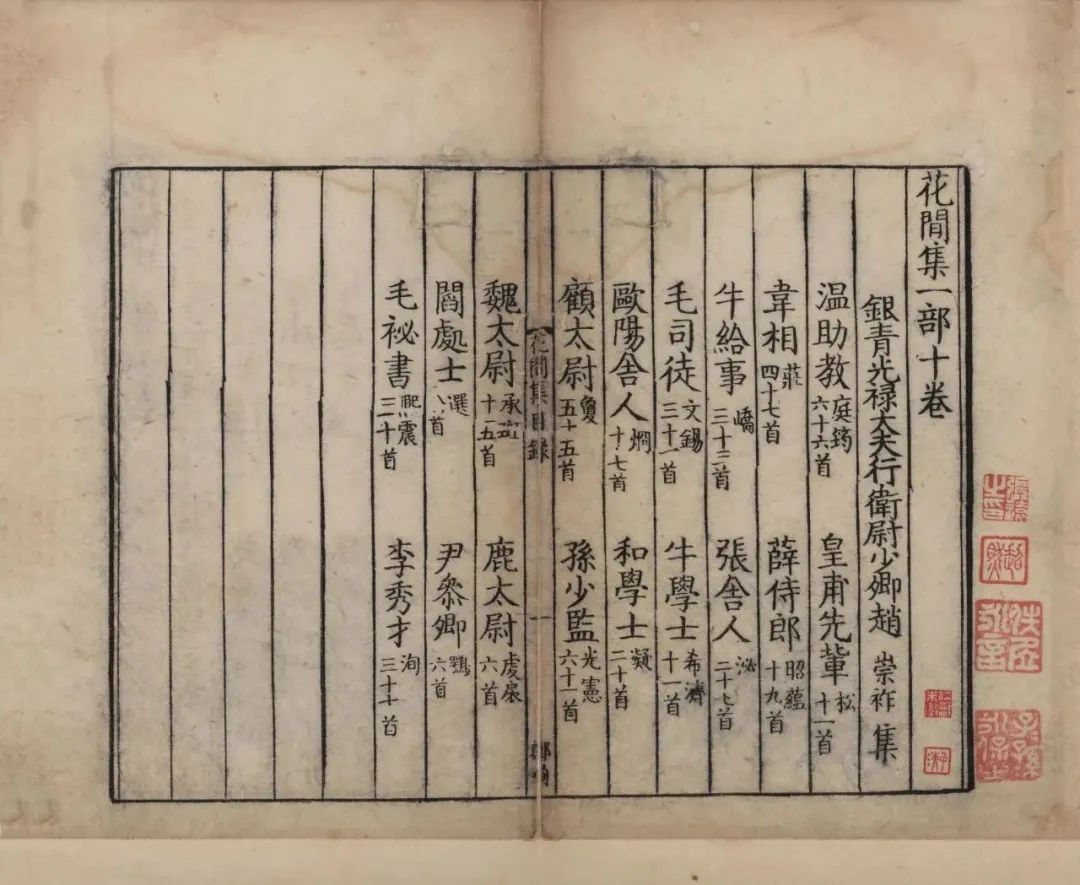 花間集一部十卷
銀青光祿大夫行衛尉少卿趙 崇祚 集
温助教庭筠六十六首 皇甫先軰松十一首
韋相莊四十七首 薛侍郎昭藴十九首
牛給事嶠三十三首 張舍人泌二十七首
毛司徒文錫三十一首 牛學士希濟十一首
歐陽舍人烱十七首 和學士凝二十首
顧太尉夐五十五首 孫少監光憲六十一首
花間集目録
一
魏太尉承班十五首 鹿太尉虔扆六首
閻處士選八首 尹叅卿鶚六首
毛祕書熙震三十首 李秀才洵三十七首